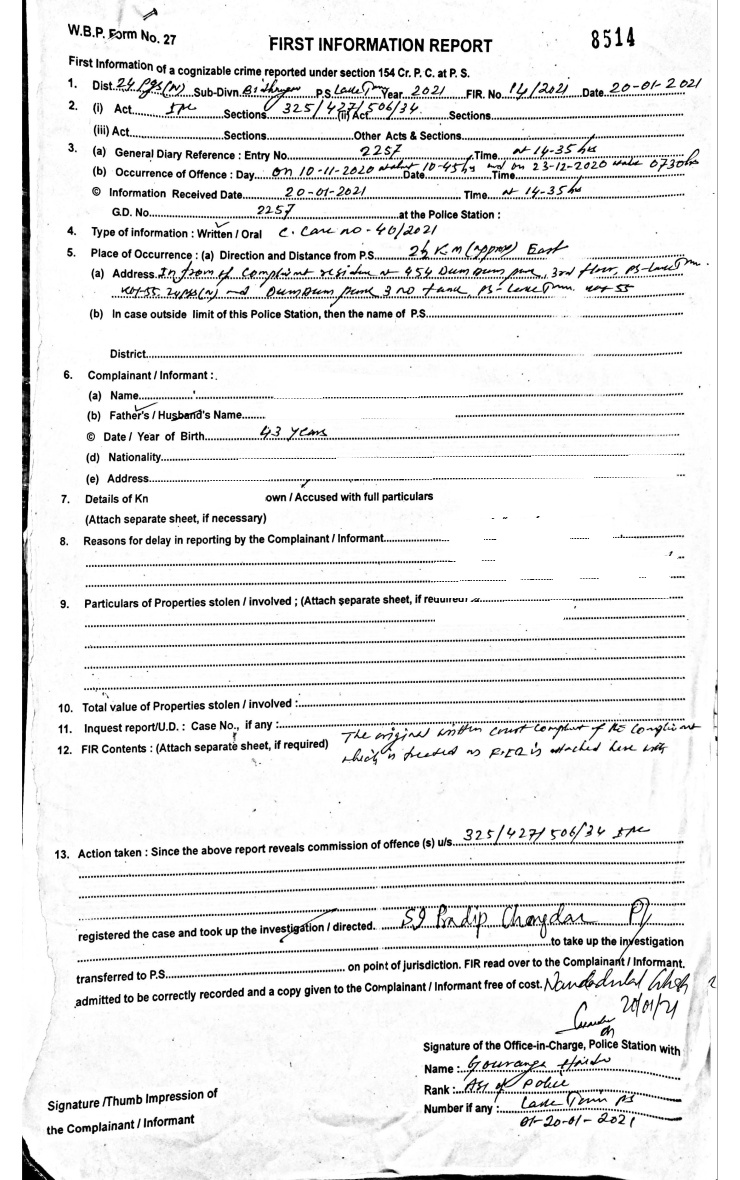 W.B.P. Form No. 27
8514
FIRST INFORMATION REPORT
First Information of a cognizable crime reported under section 154 Cr. P. C. at P. S.
1. Dist. 24 Pgs(N) Sub-Divn. P.S. Lake Town Year 2021 FIR. No. 14/2021 Date 20-01-2021
2. (i) Act IPC Sections 325/427/506/34 (ii) Act Sections
(iii) Act Sections Other Acts & Sections
3. (a) General Diary Reference : Entry No. 2257 Time at 14-35 hrs
(b) Occurrence of Offence : Day on 10-11-2020 10-45 hrs and on 23-12-2020 0730 hrs Date Time
© Information Received Date 20-01-2021 Time at 14-35 hrs
G.D. No. 2257 at the Police Station :
4. Type of information : Written / Oral C. Case no - 40/2021
5. Place of Occurrence : (a) Direction and Distance from P.S. 2½ Km (approx) East
(a) Address In front of complainant at 454 Dum Dum park, 3rd floor, PS-Lake Town
Kol-55 24 Pgs(N) and Dum Dum park 3 no tank, PS-Lake Town Kol-55
(b) In case outside limit of this Police Station, then the name of P.S.
District
6. Complainant / Informant :
(a) Name
(b) Father's / Husband's Name
© Date / Year of Birth 43 years
(d) Nationality
(e) Address
7. Details of Kn own / Accused with full particulars
(Attach separate sheet, if necessary)
8. Reasons for delay in reporting by the Complainant / Informant
9. Particulars of Properties stolen / involved ; (Attach separate sheet, if required
10. Total value of Properties stolen / involved :
11. Inquest report/U.D. : Case No., if any :
12. FIR Contents : (Attach separate sheet, if required) The original written court complaint of the complainant
which is treated as F.I.R is attached here with
13. Action taken : Since the above report reveals commission of offence (s) u/s. 325/427/506/34 IPC
registered the case and took up the investigation / directed. SI Pradip Chongdar
to take up the investigation
transferred to P.S. on point of jurisdiction. FIR read over to the Complainant / Informant.
admitted to be correctly recorded and a copy given to the Complainant / Informant free of cost. Nandadulal Ghosh
20/01/21
Signature of the Office-in-Charge, Police Station with
Name : Gouranga
Rank : ASI of Police
Signature /Thumb Impression of
Number if any : Lake Town PS
the Complainant / Informant
20-01-2021